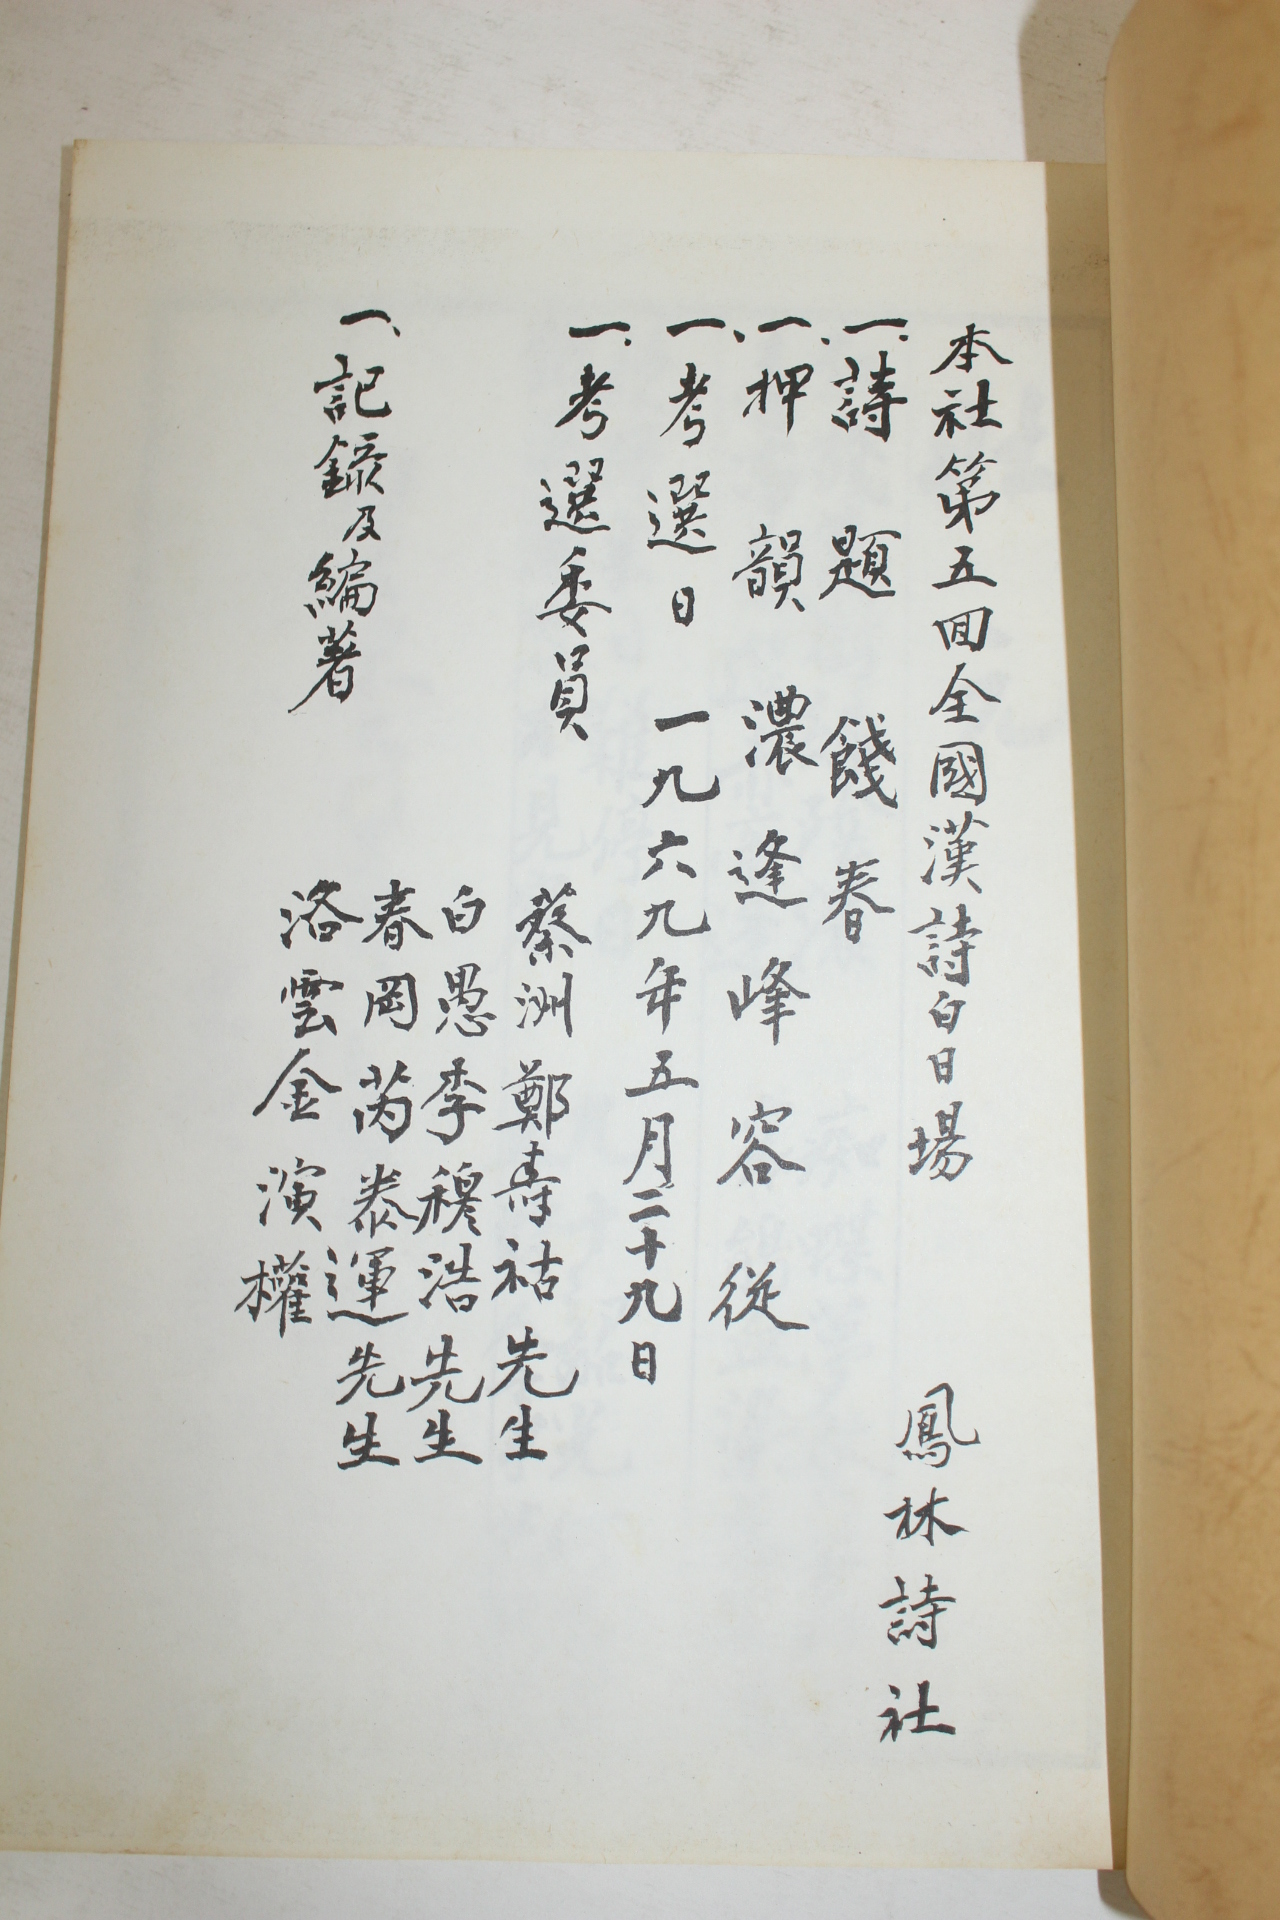 本社第五回全國漢詩白日場 鳳林詩社
一、詩題 餞春
一、押韻 濃逢峰容從
一、考選日 一九六九年五月二十九日
一、考選委員 蔡洲鄭壽祜先生
白愚李穆浩先生
春岡芮泰運先生
一、記錄及編著 洛雲金演權